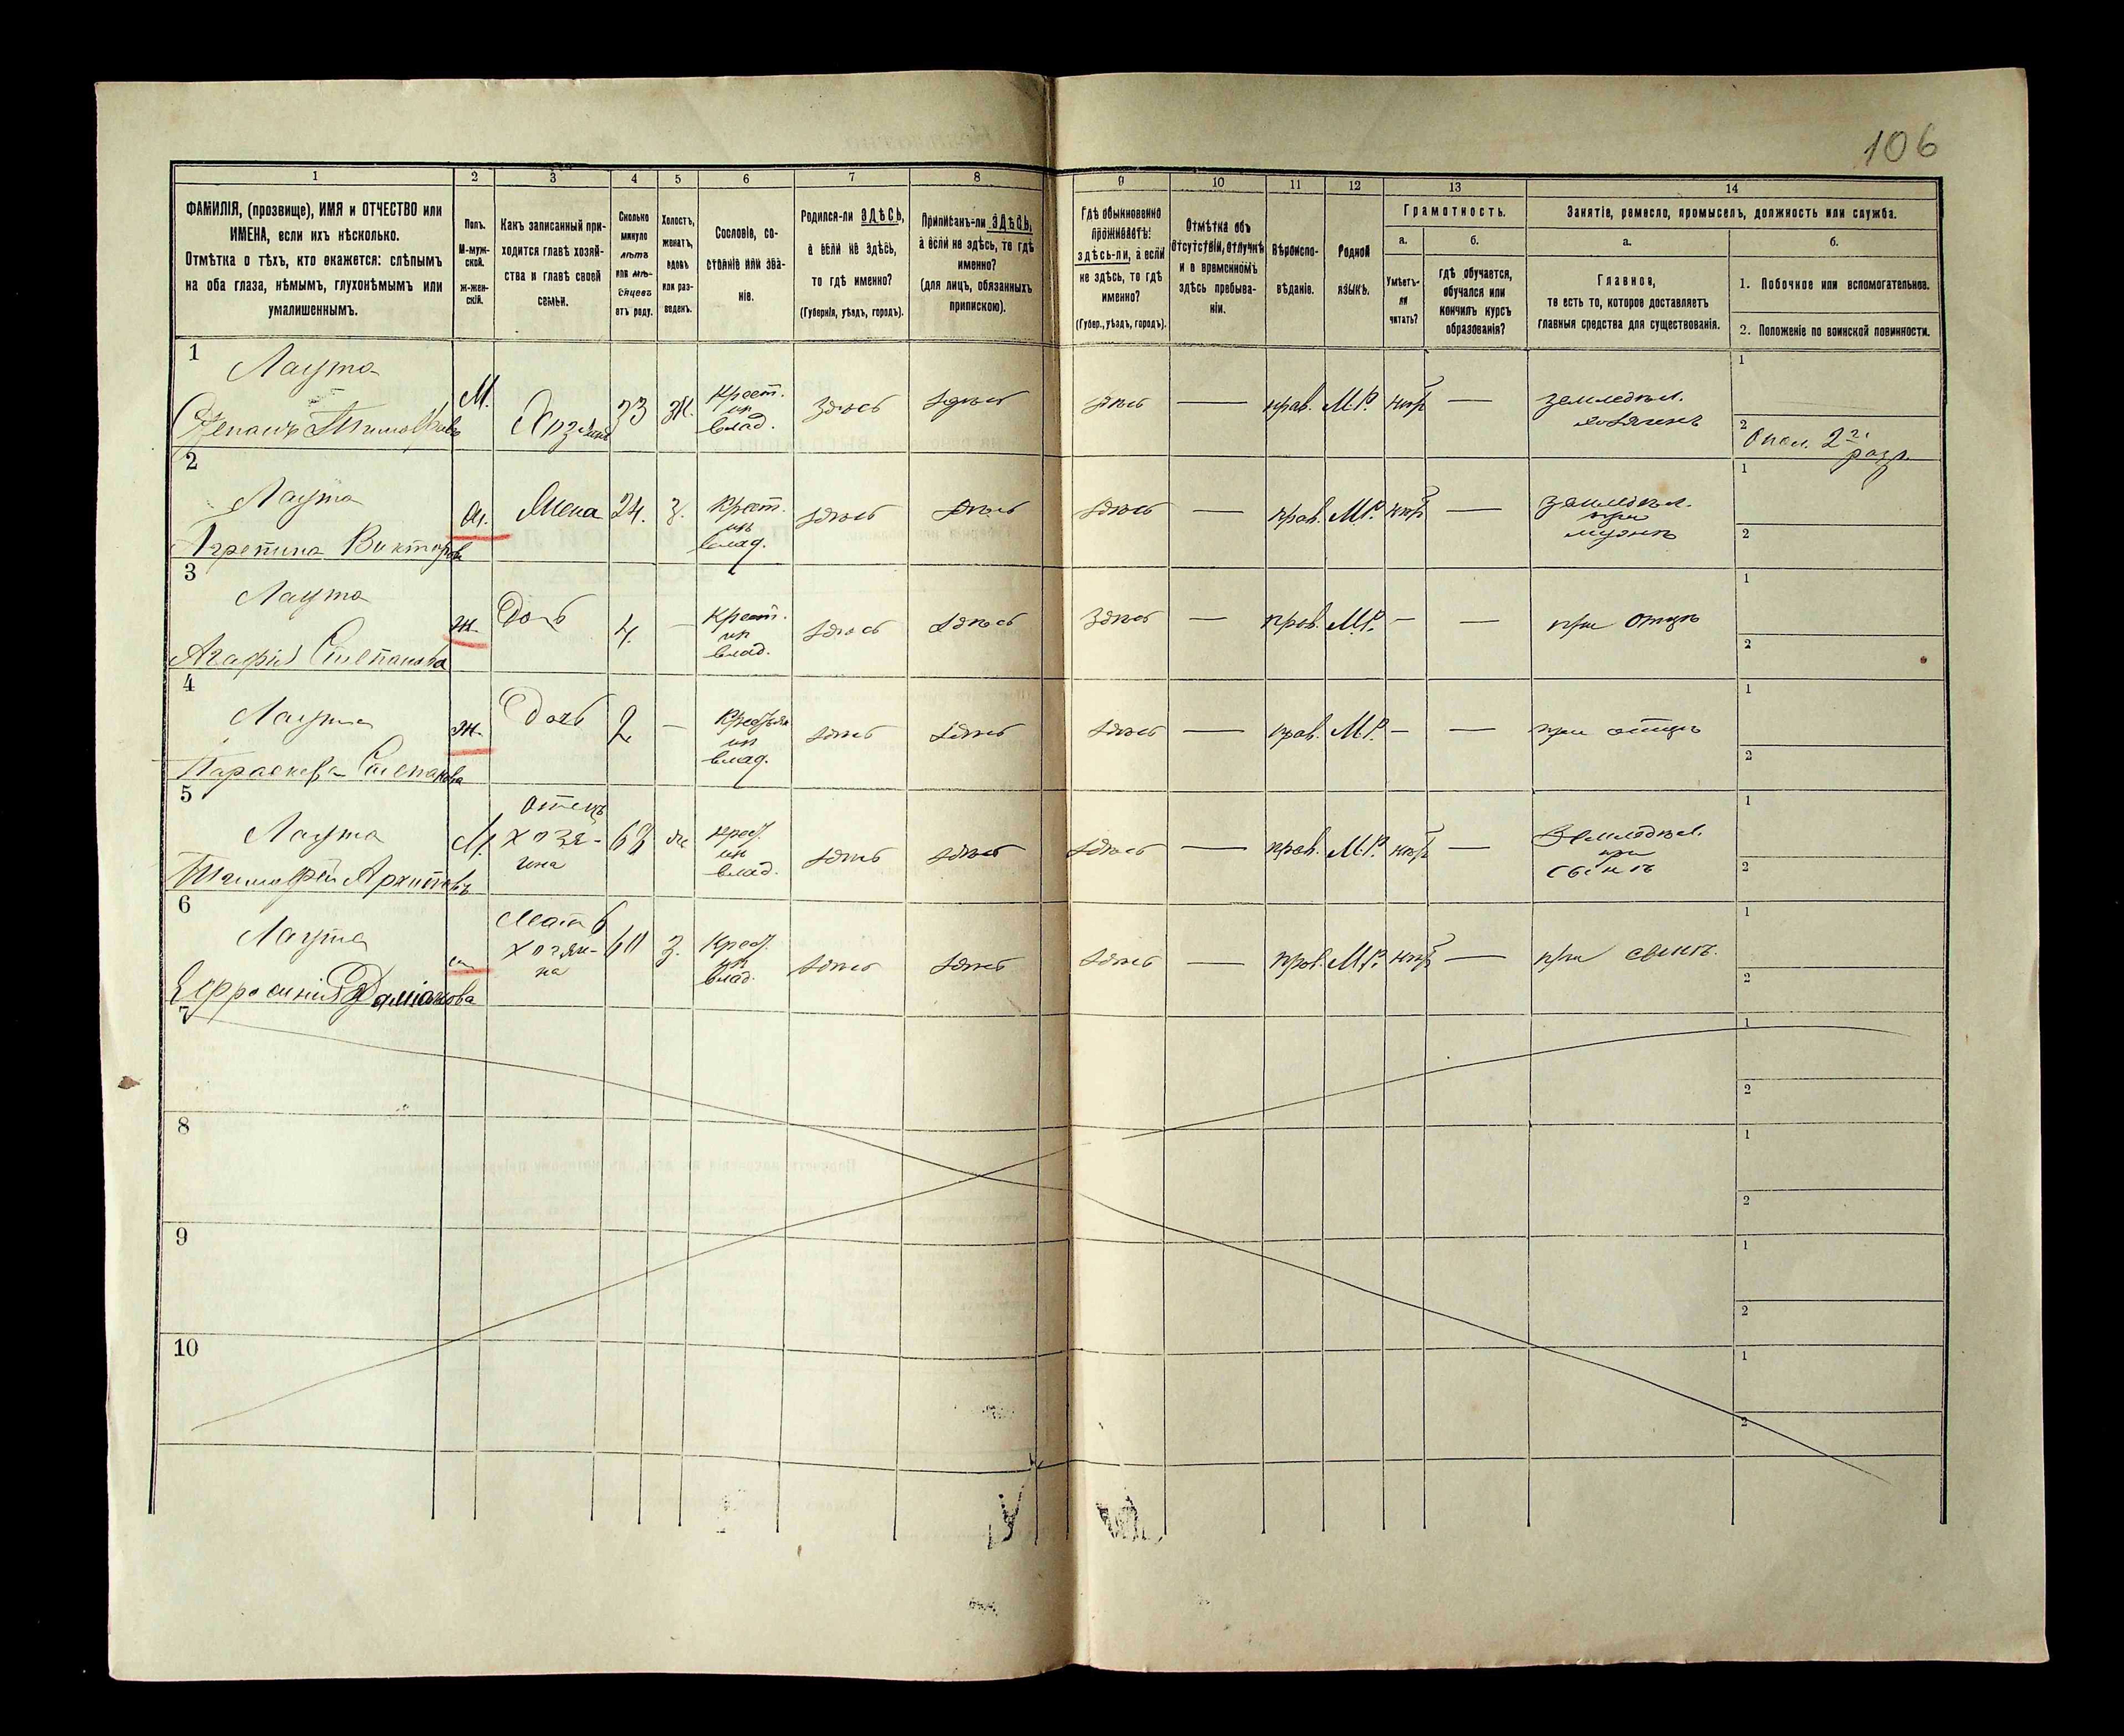 106
1 2 3 4 5 6 7 8 9 10 11 12 13 14
ФАМИЛІЯ, (прозвище), ИМЯ и ОТЧЕСТВО или
ИМЕНА, если ихъ нѣсколько.
Отмѣтка о тѣхъ, кто окажется: слѣпымъ
на оба глаза, нѣмымъ, глухонѣмымъ или
умалишеннымъ.
Полъ.
М-муж-
ской.
ж-жен-
скій.
Какъ записанный при-
ходится главѣ хозяй-
ства и главѣ своей
семьи.
Сколько
минуло
лѣтъ
или мѣ-
сяцевъ
отъ роду.
Холостъ,
женатъ,
вдовъ
или раз-
веденъ.
Сословіе, со-
стояніе или зва-
ніе.
Родился-ли ЗДѢСЬ,
а если не здѣсь,
то гдѣ именно?
(Губернія, уѣздъ, городъ).
Приписанъ-ли ЗДѢСЬ,
а если не здѣсь, то гдѣ
именно?
(для лицъ, обязанныхъ
припискою).
Гдѣ обыкновенно
проживаетъ:
здѣсь-ли, а если
не здѣсь, то гдѣ
именно?
(Губер., уѣздъ, городъ).
Отмѣтка объ
отсутствіи, отлучкѣ
и о временномъ
здѣсь пребыва-
ніи.
Вѣроиспо-
вѣданіе.
Родной
языкъ.
Грамотность.
а.
Умѣетъ-
ли
читать?
б.
гдѣ обучается,
обучался или
кончилъ курсъ
образованія?
Занятіе, ремесло, промыселъ, должность или служба.
а.
Главное,
то есть то, которое доставляетъ
главныя средства для существованія.
б.
1. Побочное или вспомогательное.
2. Положеніе по воинской повинности.
1
Лаута
Степанъ Тимофѣевъ
М. Хозяинъ 33 ж. Крест. из влад. здѣсь здѣсь здѣсь — прав. М.Р. нѣт — земледѣл. хозяинъ
1
2 Опол. 2 г. разр.
2
Лаута
Агрепина Викторова
ж. Жена 24. з. Крест. из влад. здѣсь здѣсь здѣсь — прав. М.Р. нѣт — земледѣл. при мужѣ
1
2
3
Лаута
Агафія Степанова
ж. Дочь 4. — Крест. из влад. здѣсь здѣсь здѣсь — прав. М.Р. — — при отцѣ
1
2
4
Лаута
Параскева Степанова
ж. Дочь 2 — из влад. здѣсь здѣсь здѣсь — прав. М.Р. — — при отцѣ
1
2
5
Лаута
Тимофей Архиповъ
М. Отецъ хозя-ина 68 ж. крест. из влад. здѣсь здѣсь здѣсь — прав. М.Р. нѣт — Земледѣл. при сынѣ
1
2
6
Лаута
Ефросинія Даміанова
Мать хозяи-на 60 з. Крест. из влад. здѣсь здѣсь здѣсь — прав. М.Р. нѣт — при сынѣ.
1
2
7
1
2
8
1
2
9
1
2
10
1
2